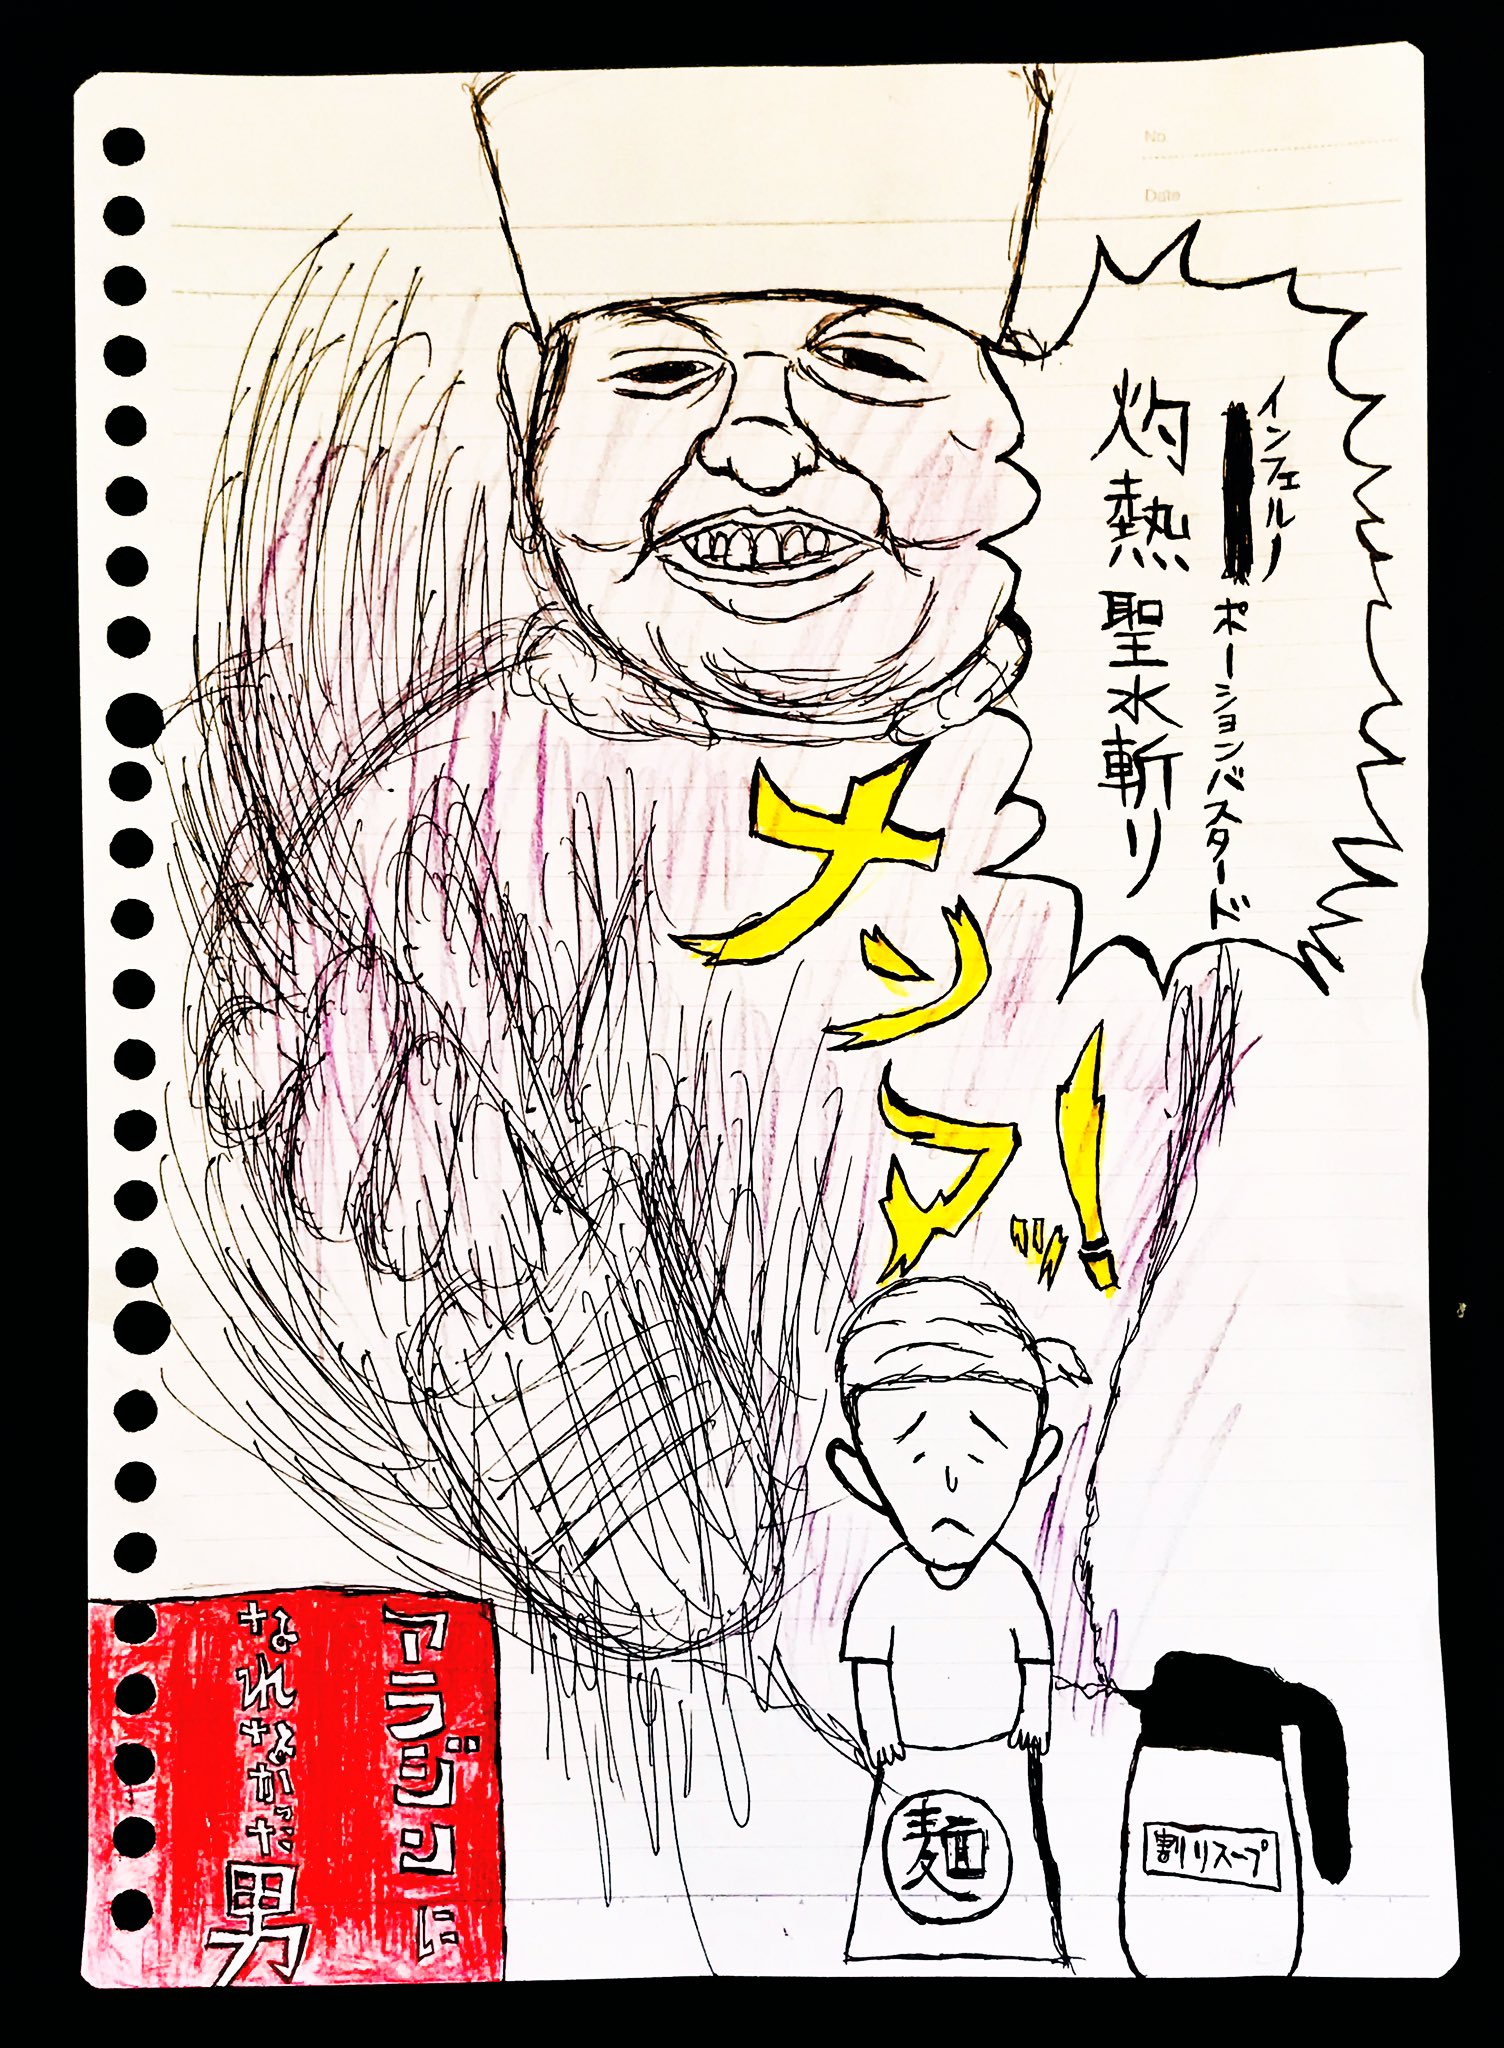 No.
Date
インフェルノ
ポーションバスタード
灼熱聖水斬り
ナンマッ!
麺
割りスープ
アラジンに
なれなかった
男